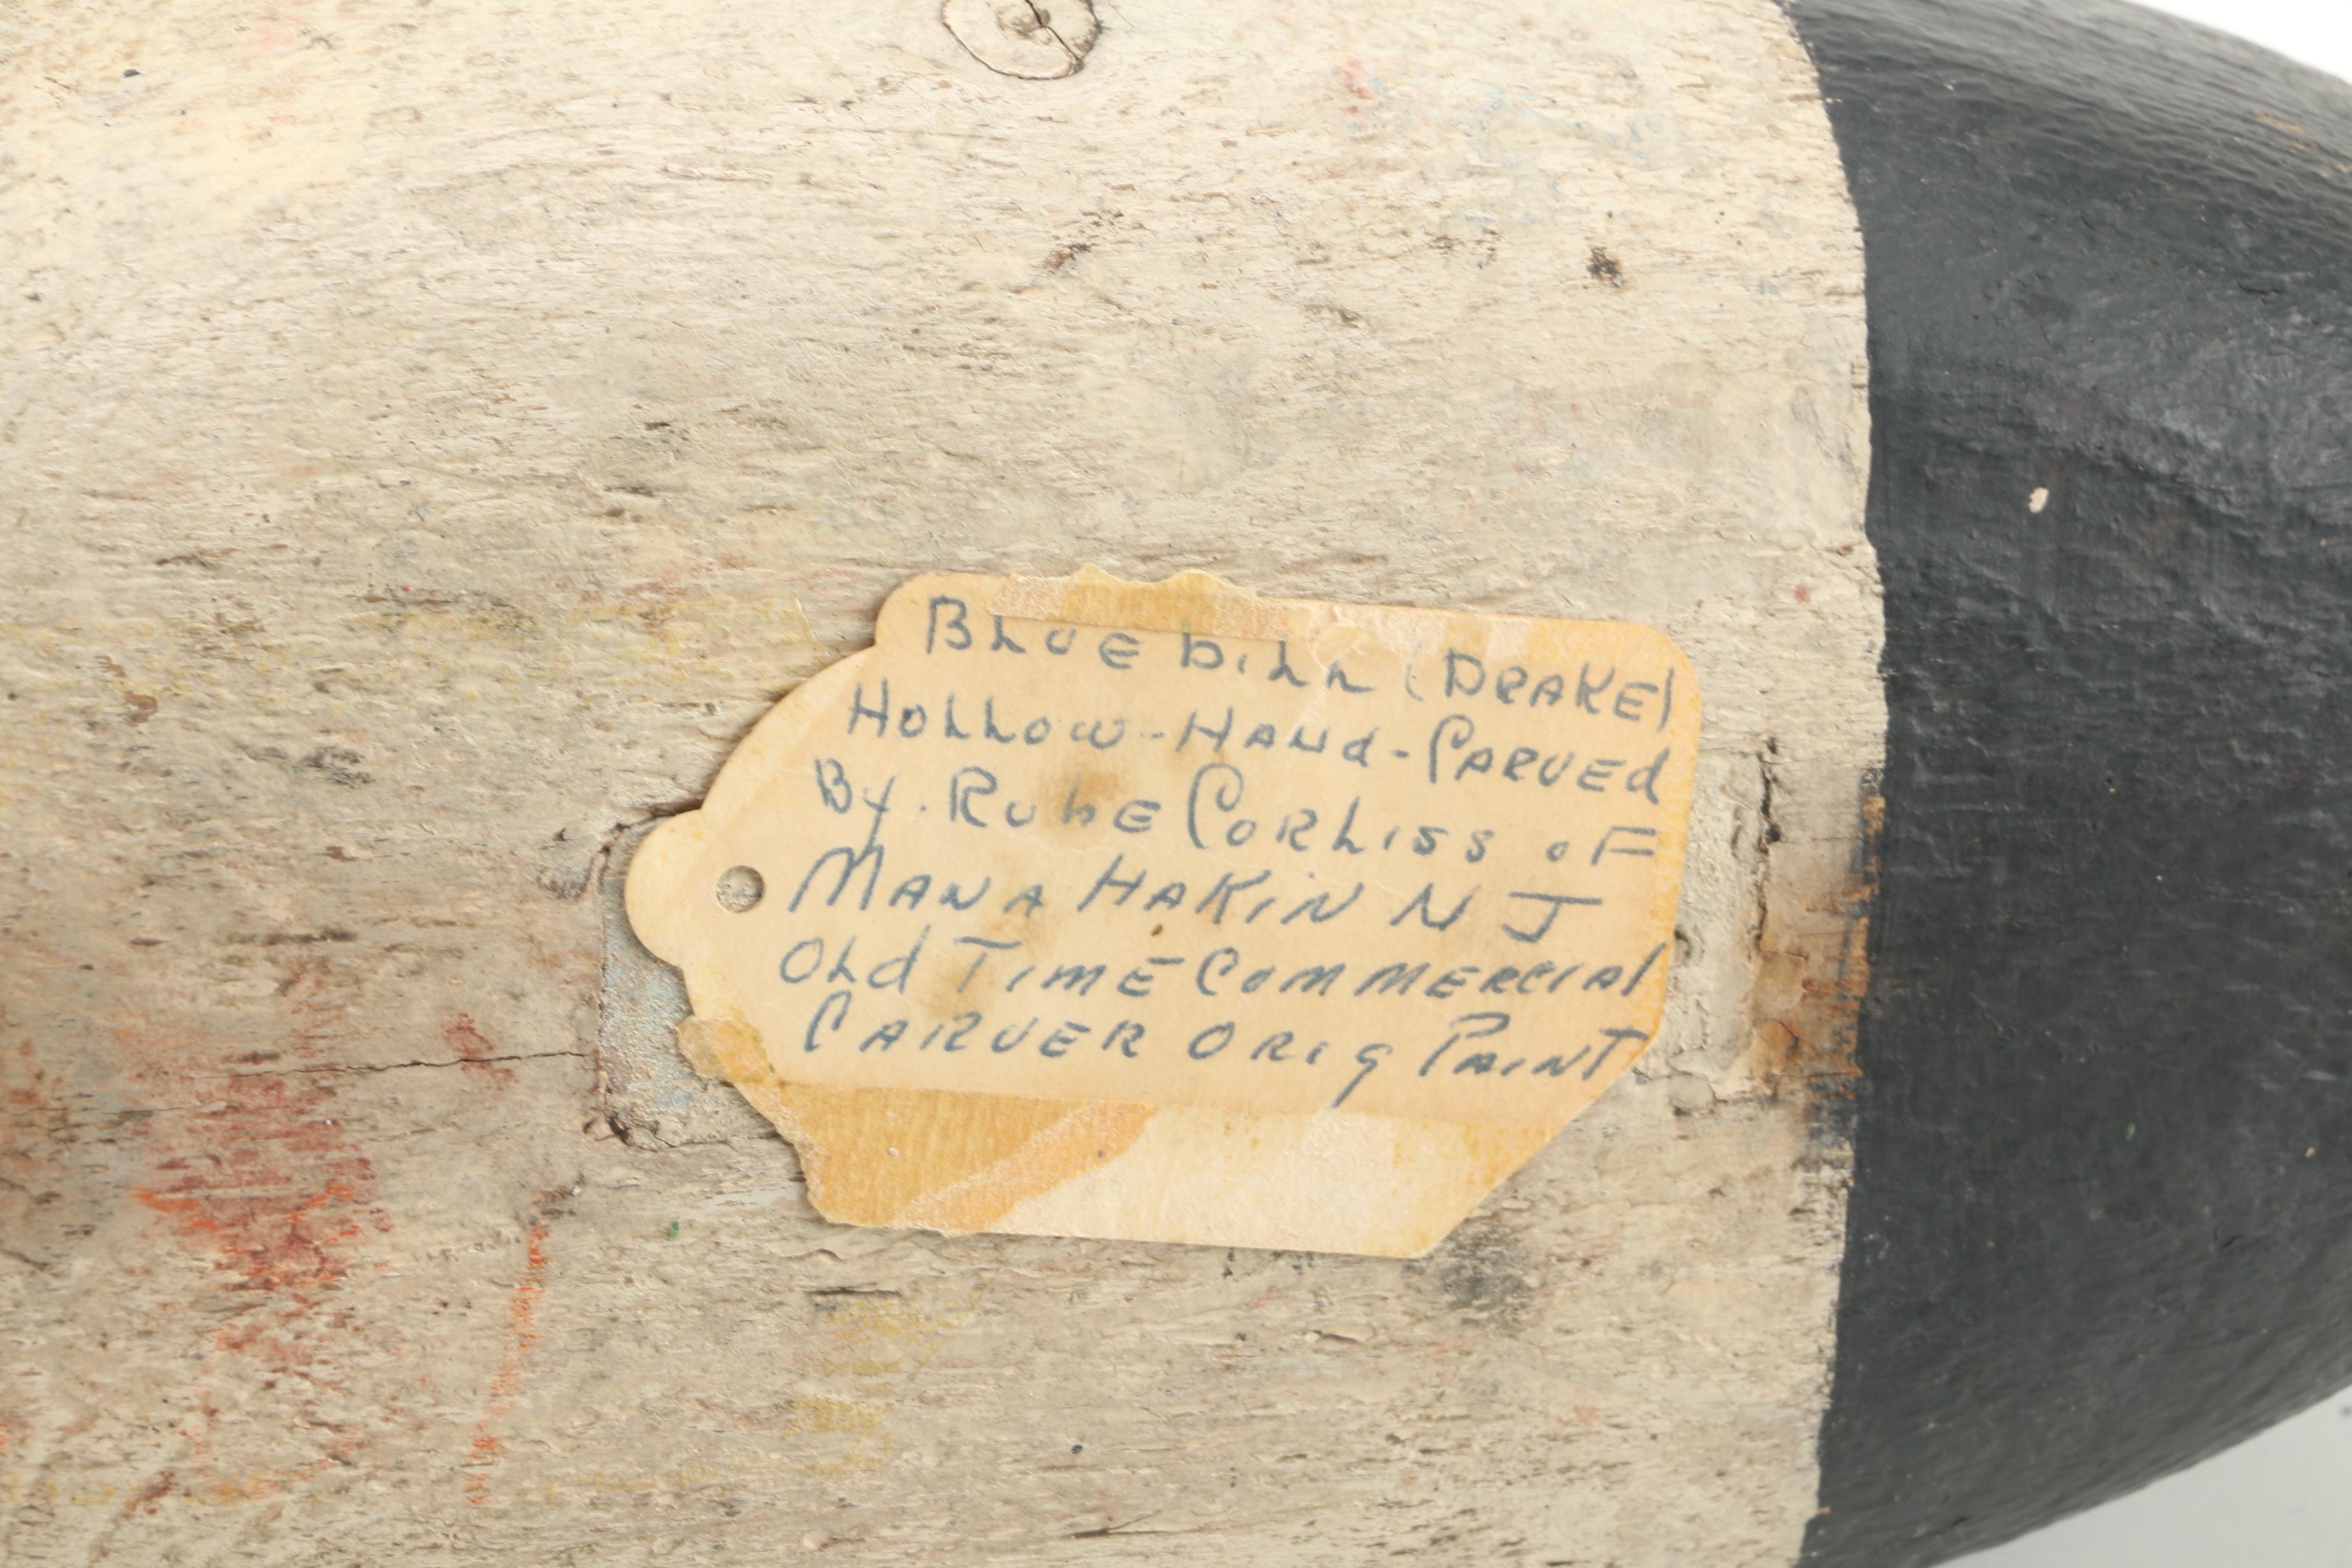 BLUE bill (DRAKE)
HOLLOW-HANd-CARVEd
By. RUbE CORLiss oF
MANA HAKiN N J
Old TiME COMMERCIAl
CARVER ORig PAiNT